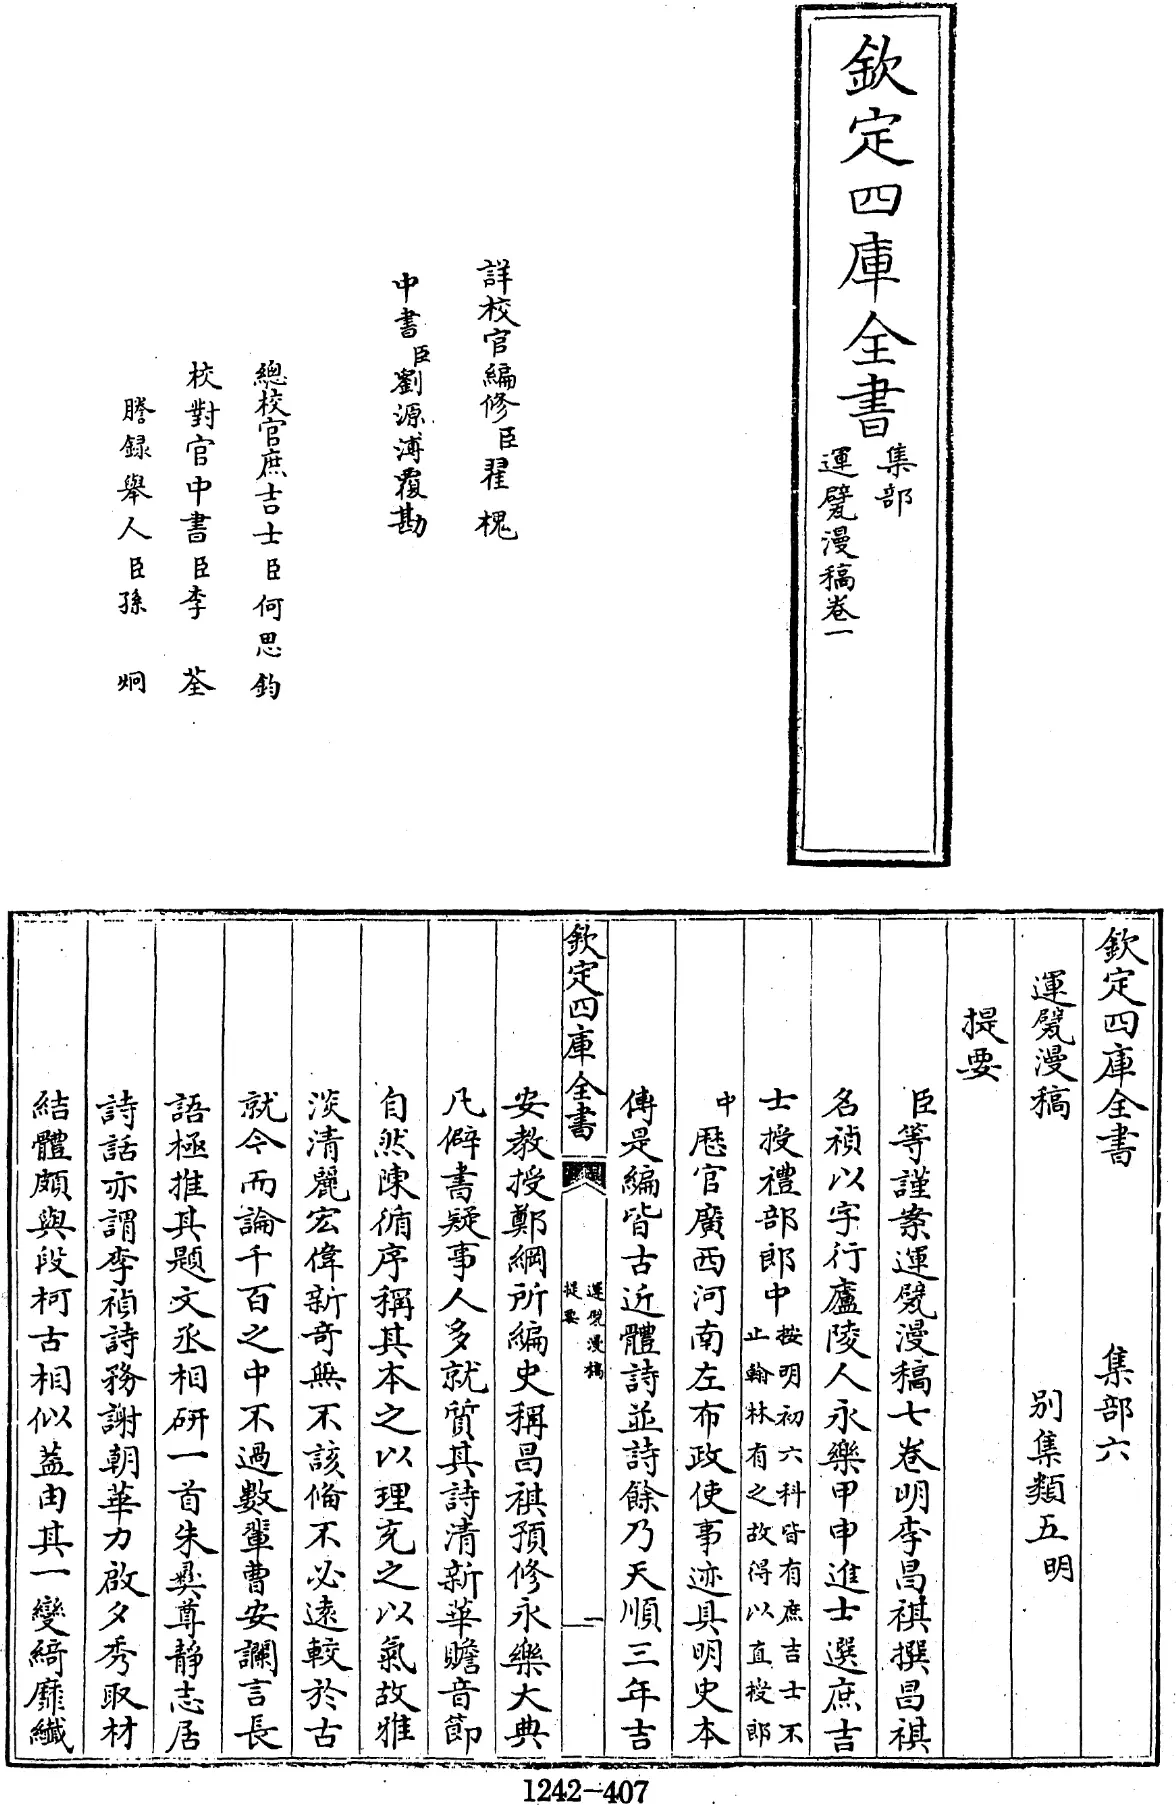 欽定四庫全書
集部
運甓漫稿卷一
詳校官編修臣翟槐
中書臣劉源溥覆勘
總校官庶吉士臣何思鈞
校對官中書臣李荃
謄録舉人臣孫炯
欽定四庫全書 集部六
運甓漫稿 别集類五明
提要
臣等謹案運甓漫稿七卷明李昌祺撰昌祺
名禎以字行廬陵人永樂甲申進士選庶吉
士授禮部郎中按明初六科皆有庶吉士不
止翰林有之故得以直授郎
中歴官廣西河南左布政使事迹具明史本
傳是編皆古近體詩並詩餘乃天順三年吉
欽定四庫全書
運甓漫稿
提要
一
安教授鄭綱所編史稱昌祺預修永樂大典
凡僻書疑事人多就質其詩清新華贍音節
自然陳循序稱其本之以理充之以氣故雅
淡清麗宏偉新奇無不該備不必遠較於古
就今而論千百之中不過數輩曹安讕言長
語極推其題文丞相研一首朱彝尊靜志居
詩話亦謂李禎詩務謝朝華力啟夕秀取材
結體頗與段柯古相似葢由其一變綺靡纎
1242-407